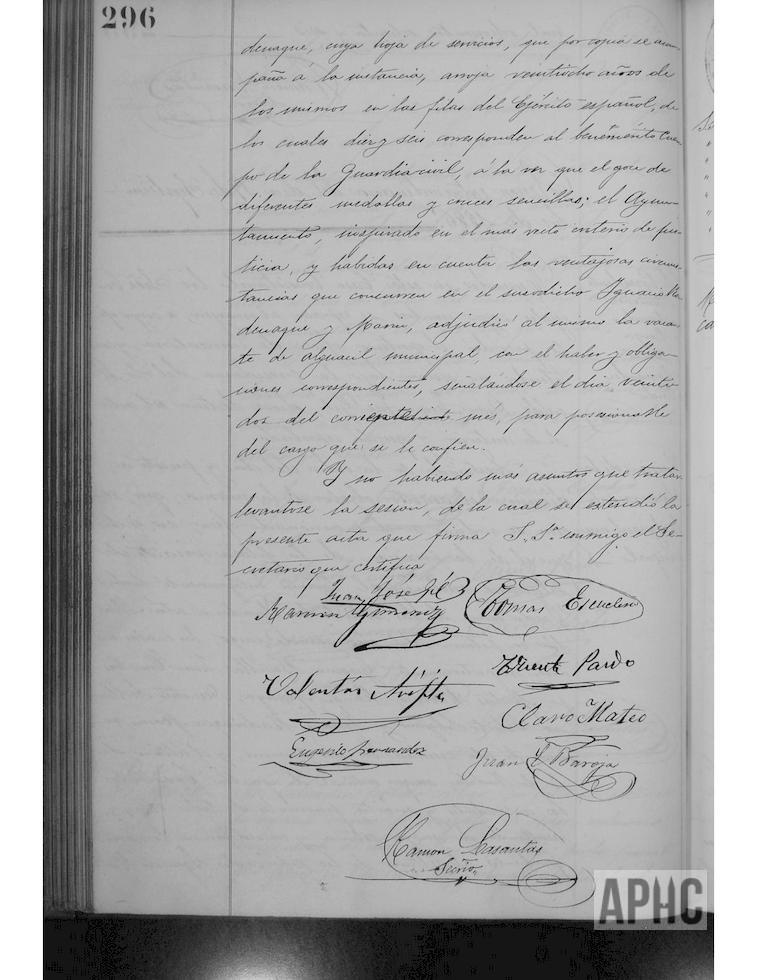 296
denaque, cuya hoja de servicios, que por copia se acom-
paña á la instancia, arroja veintiocho años de
los mismos en las filas del Ejército español, de
los cuales diez y seis corresponden al benemérito Cuer-
po de la Guardia civil, á la vez que el goce de
diferentes medallas y cruces sencillas; el Ayun-
tamiento, inspirado en el más recto criterio de jus-
ticia, y habidas en cuenta las ventajosas circuns-
tancias que concurren en el susodicho Ignacio
denaque y Marin, adjudicó al mismo la vacan-
te de alguacil municipal, con el haber y obliga-
ciones correspondientes, señalándose el dia veinti-
dos del corriente mes, para posesionarle
del cargo que se le confiere.
Y no habiendo más asuntos que tratar
levantose la sesion, de la cual se estendió la
presente acta que firma S. Sª conmigo el Se-
cretario que certifica
Juan José
Gimenez
Tomás Escudero
Vicente Pardo
Valentín
Claro Mateo
Eugenio Fernández
Juan Baroja
Ramon Lasantas
Secrio
APHC